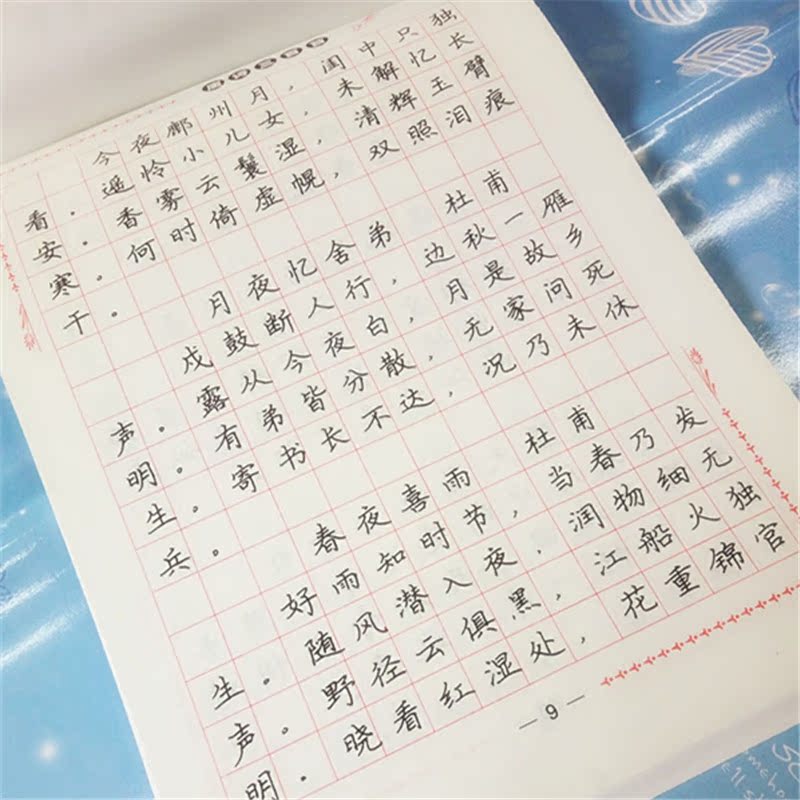 今夜鄜州月，闺中只独
看。遥怜小儿女，未解忆长
安。香雾云鬟湿，清辉玉臂
寒。何时倚虚幌，双照泪痕
干。
月夜忆舍弟 杜甫
戍鼓断人行，边秋一雁
声。露从今夜白，月是故乡
明。有弟皆分散，无家问死
生。寄书长不达，况乃未休
兵。
春夜喜雨 杜甫
好雨知时节，当春乃发
生。随风潜入夜，润物细无
声。野径云俱黑，江船火独
明。晓看红湿处，花重锦官
— 9 —